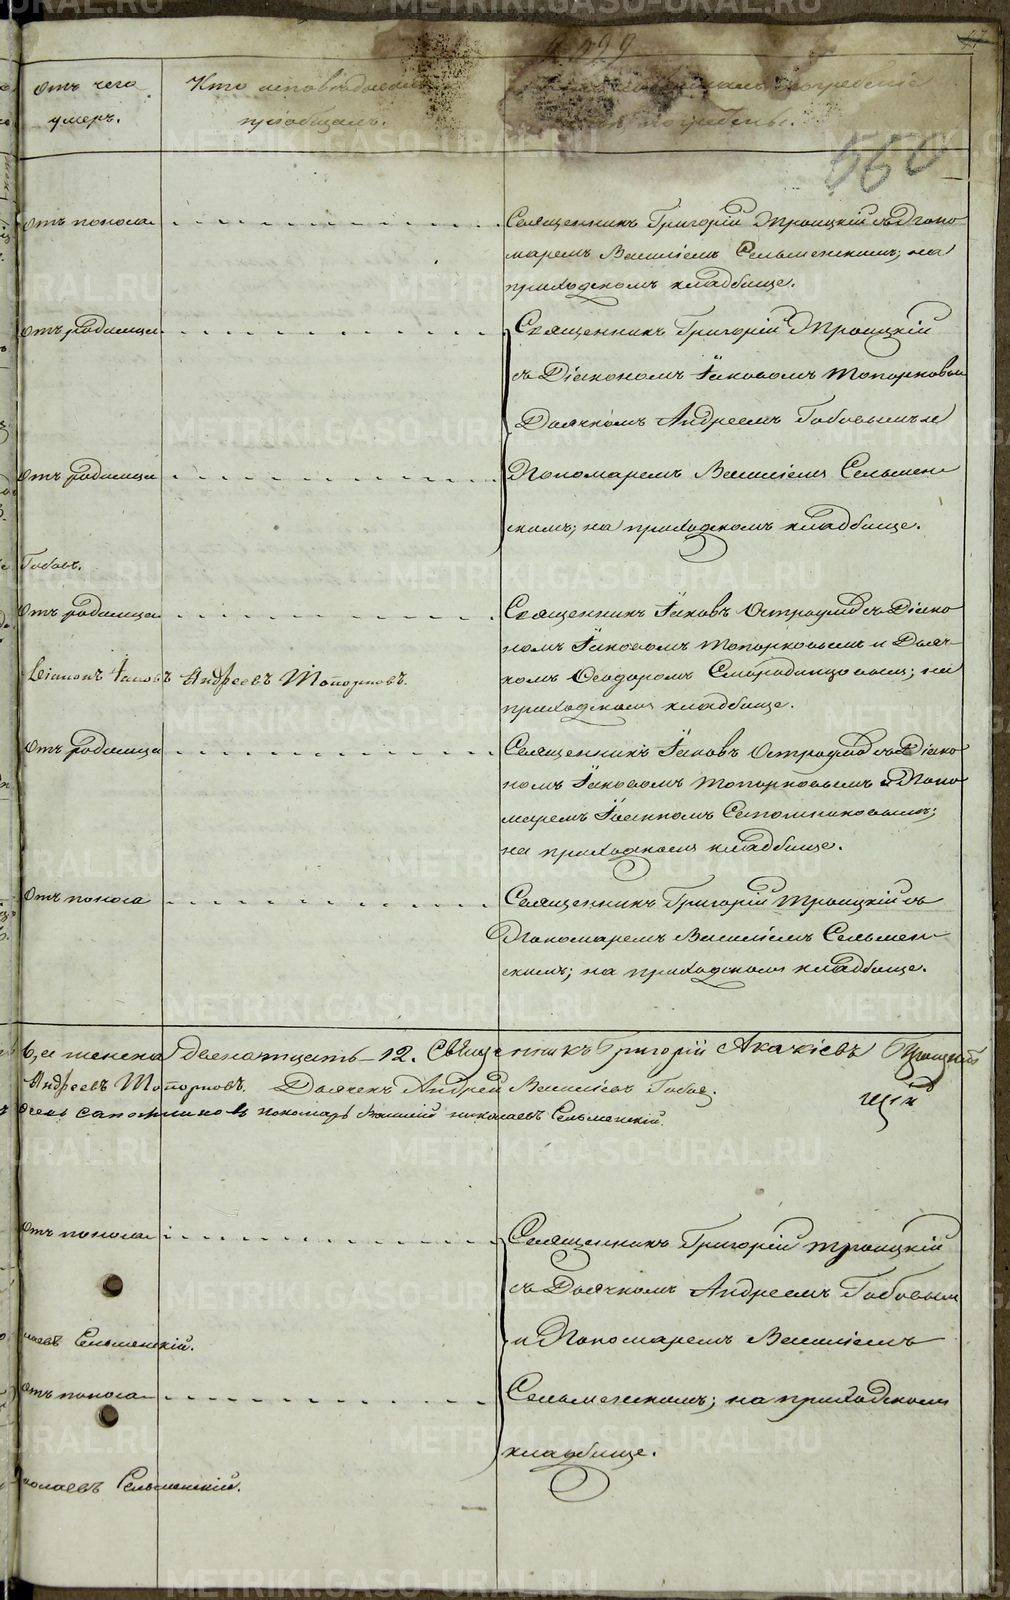 47
560
Отъ чего
умеръ.
Кто исповѣдовалъ
пріобщалъ.
погребеніе
погребены.
Отъ поноса
Священникъ Григорій Троицкій съ Поно
маремъ Василіемъ Сельменскимъ; на
приходскомъ кладбище.
Отъ родимца
Священникъ Григорій Троицкій
съ Діакономъ Іаковомъ Топорковым
Дьячкомъ Андреемъ Бобовымъ и
Отъ родимца
Пономаремъ Василіемъ Сельмен
скимъ; на приходскомъ кладбище.
Отъ родимца
Священникъ Іаковъ съ Діако
номъ Іаковомъ Топорковымъ и Дьяч
комъ Ѳеодоромъ Смородинцовымъ; на
приходскомъ кладбище.
Іаковъ Андреевъ Топорковъ.
Отъ родимца
Священникъ Іаковъ съ Діако
номъ Іаковомъ Топорковымъ и Поно
маремъ Іоанномъ Сапожниковымъ;
на приходскомъ кладбище.
Отъ поноса
Священникъ Григорій Троицкій съ
Пономаремъ Василіемъ Сельмен
скимъ; на приходскомъ кладбище.
женска двенатцать 12. Священникъ Григорій Акакіевъ Троицкій
Андреевъ Топорковъ. Дьячекъ Андрей Василіевъ
Сапожниковъ пономарь Василий николаевъ Сельменскій.
Отъ поноса
Священникъ Григорій Троицкій
съ Дьячкомъ Андреемъ Бобовым
и Пономаремъ Василіемъ
лаевъ Сельменскій.
Отъ поноса
Сельменскимъ; на приходском
кладбище.
колаевъ Сельменскій.
METRIKI.GASO-URAL.RU